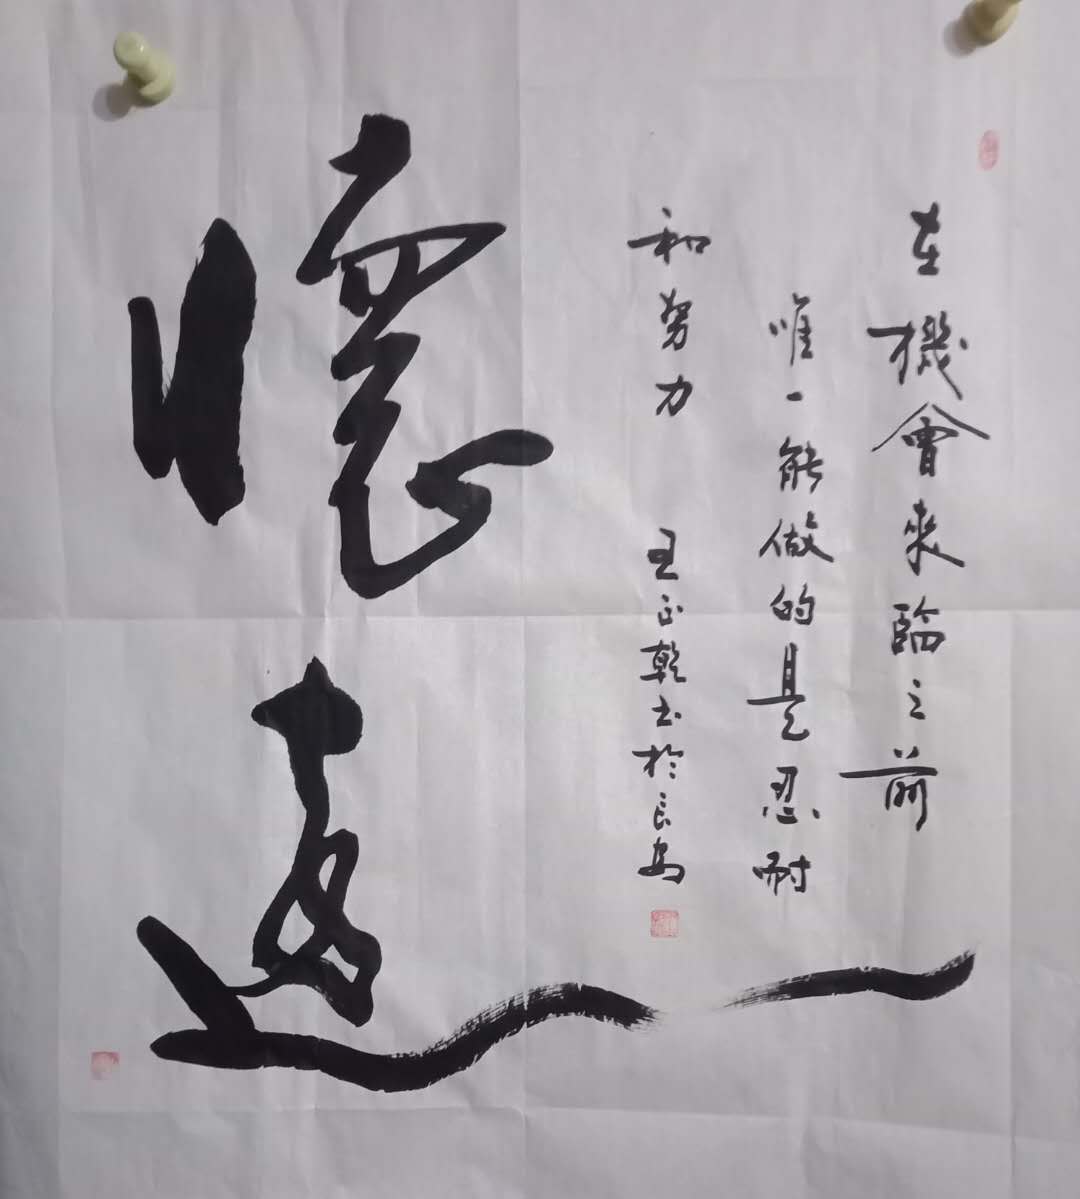 在機會來臨之前
唯一能做的是忍耐
和努力 王正乾书於长安
懷遠